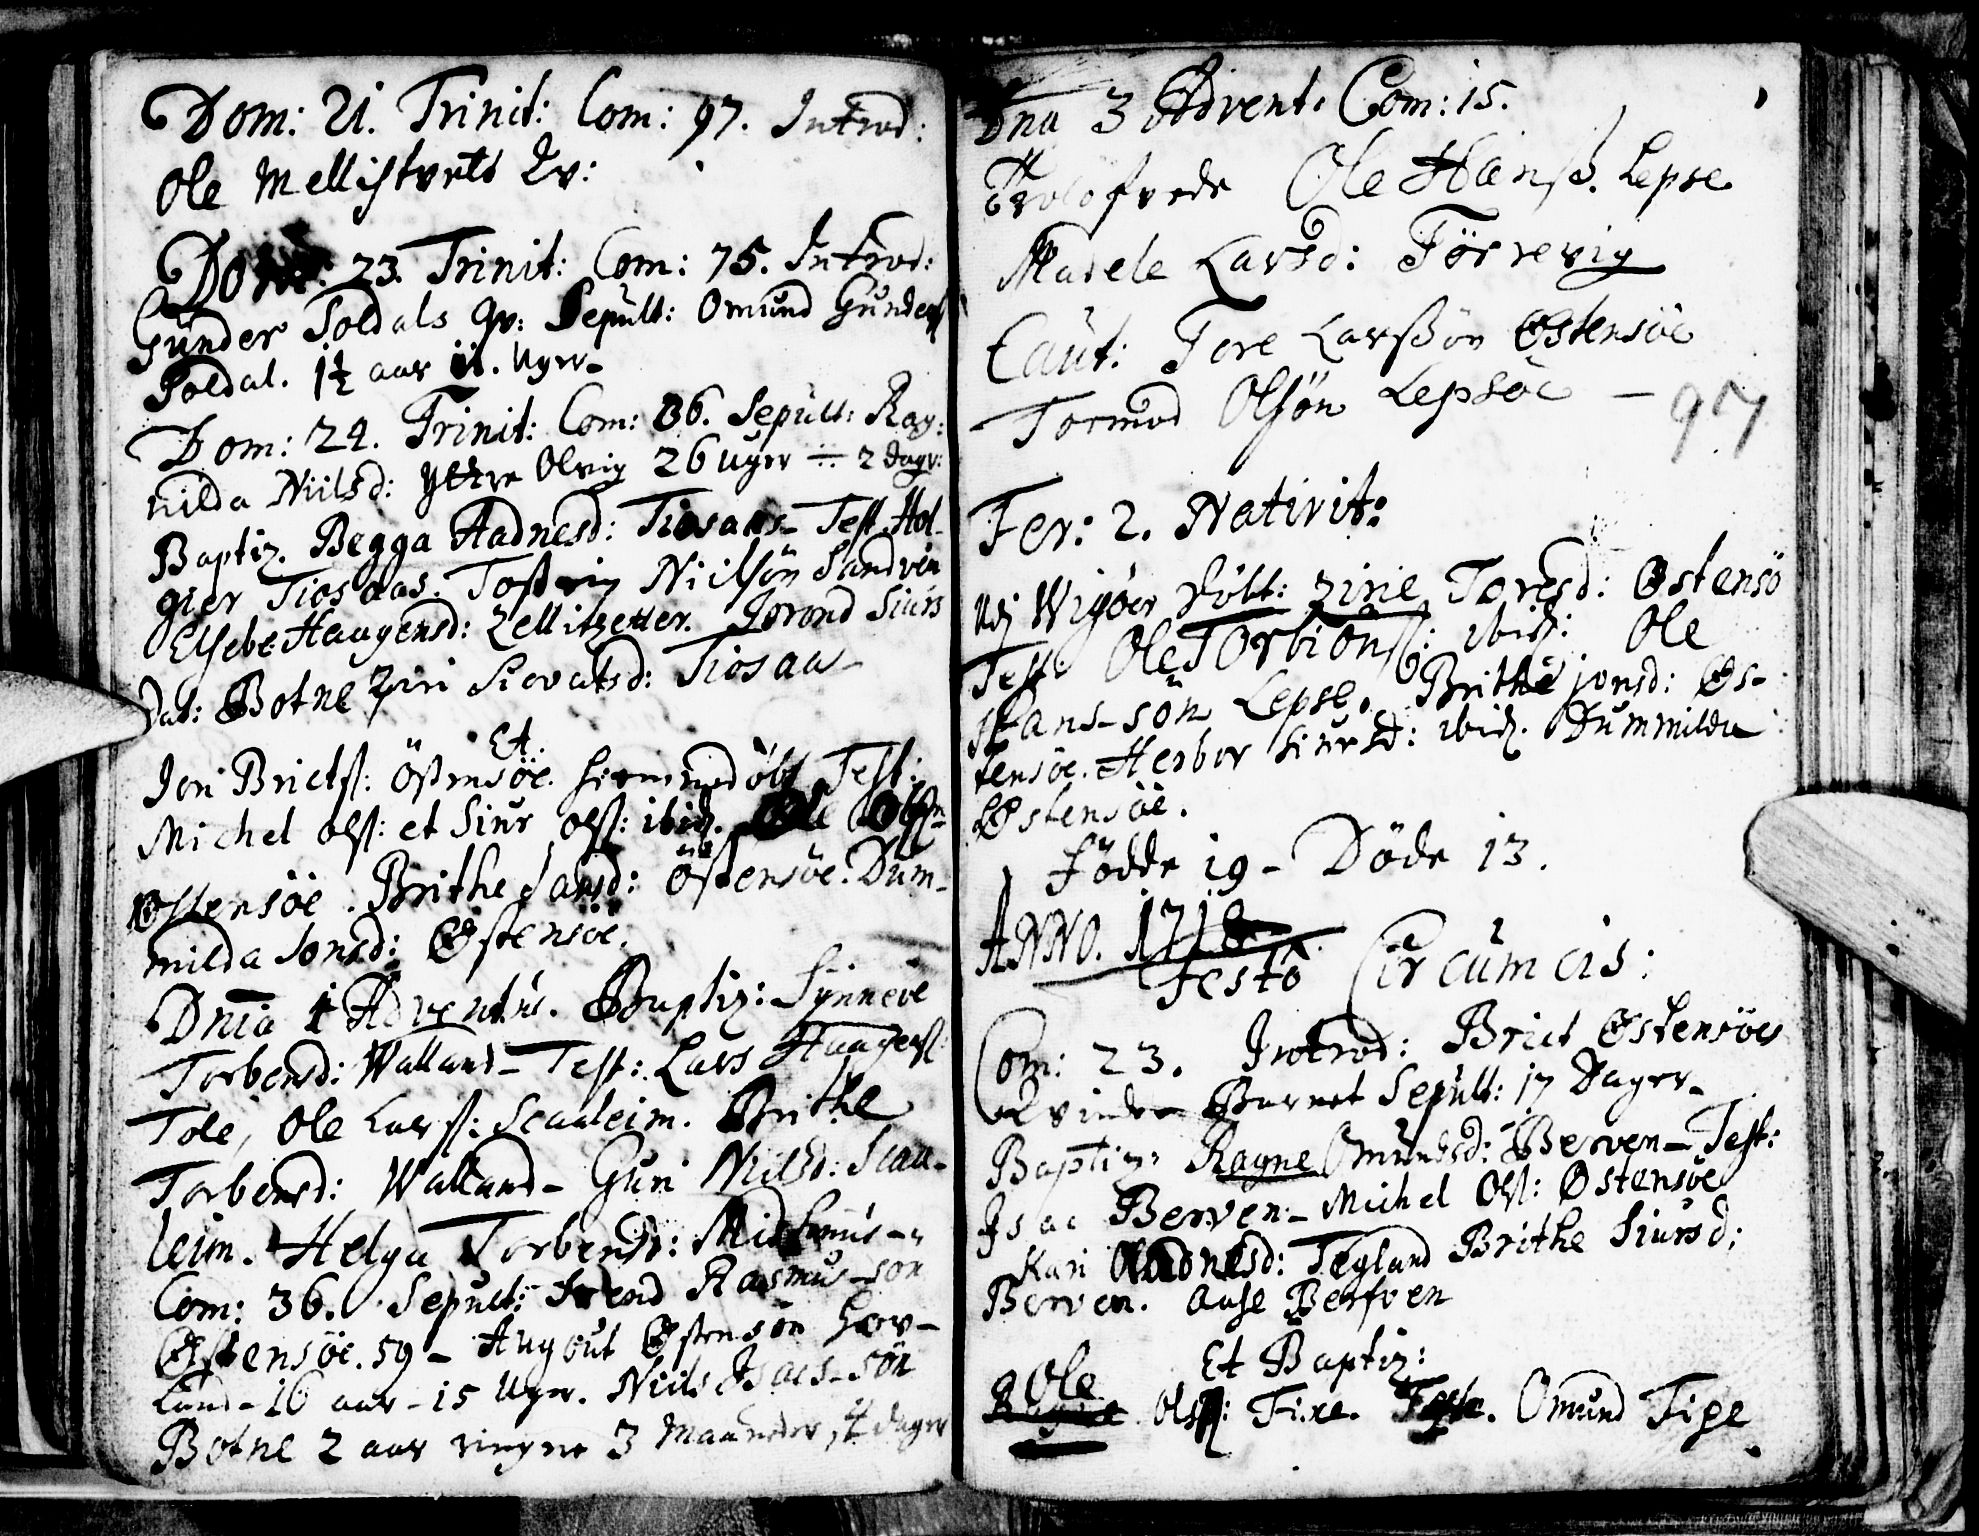 Dom: 21. Trinit: Com: 97. Introd:
Ole Mellistvets Qv:
Dom: 23. Trinit: Com: 75. Introd:
Gunder Soldals qv: Sepult: Omund Gunders
Soldal. 1½ aar 11. Uger
Dom: 24. Trinit: Com: 86. Sepult: Rag:
nilda Niilsd: yttre Olvig 26 uger ÷ 2 dage:
Baptiz. Begga Aadnesd: Tiosaas Test. Hol-
gier Tiosaas. Niilsøn Sandven
Elsebe Haugensd: Jorond Siurs
Dat: Botne Ziri Siovatsd: Tiosaas
Et
Jon Brictß: Östensöe. Test:
Michel olß: et Siur olß: ibid. Ole Olßn
Østensöe. Brithe Larsd: Östensöe. Dum-
milda Jonsd: Østensöe.
Dnia 1 Adventus. Baptiz: Synneve
Torbensd: Walland - Test: Lars Haagenß:
Tole, Ole Larsß: Scaaleim. Brithe
Torbensd: Walland - Guri Niilsd: Scaa-
leim. Helga Torbensd:
Com: 36. Sepult: Rasmus-son
Østensöe. 59 - Augout Østensön Hær-
land - 16 aar - 15 Uger. Niels Isacs-søn
Botne 2 aar ringre 3 Maaneder, 4 dager
Dna 3 Advent. Com: 15.
Trolofvede Ole Hansß. Lepse
Madele Larsd: Törrevig
Caut: Tore Larsßøn Østensöe
Tormod Olsøn Lepsöe - 97
Fer: 2. Nativit:
Udj Wigöer födt: Zirie Toresd: Ostensö
Test. Ole Torbiönß: ibid: Ole
Hans-sön Lepse. Brithe jonsd: Øs-
tensöe. Herbor Siursd: ibid. Dummilda
Østensöe.
Födde 19 - Döde 13.
ANNO. 1718
Festo Circumcis:
Com: 23. Introd: Brict Østensöes
qvinde Barnet Sepult: 17 Dager
Baptiz: Ragne Omundsd: Berven - Test:
Isac Berven - Michel Olß: Østensöe
Kari Aadnesd: Tegland Brithe Siursd:
Berven. Aase Berfven
Et Baptiz:
Ole
Olsß: Fixe. Test. Omund Fixe